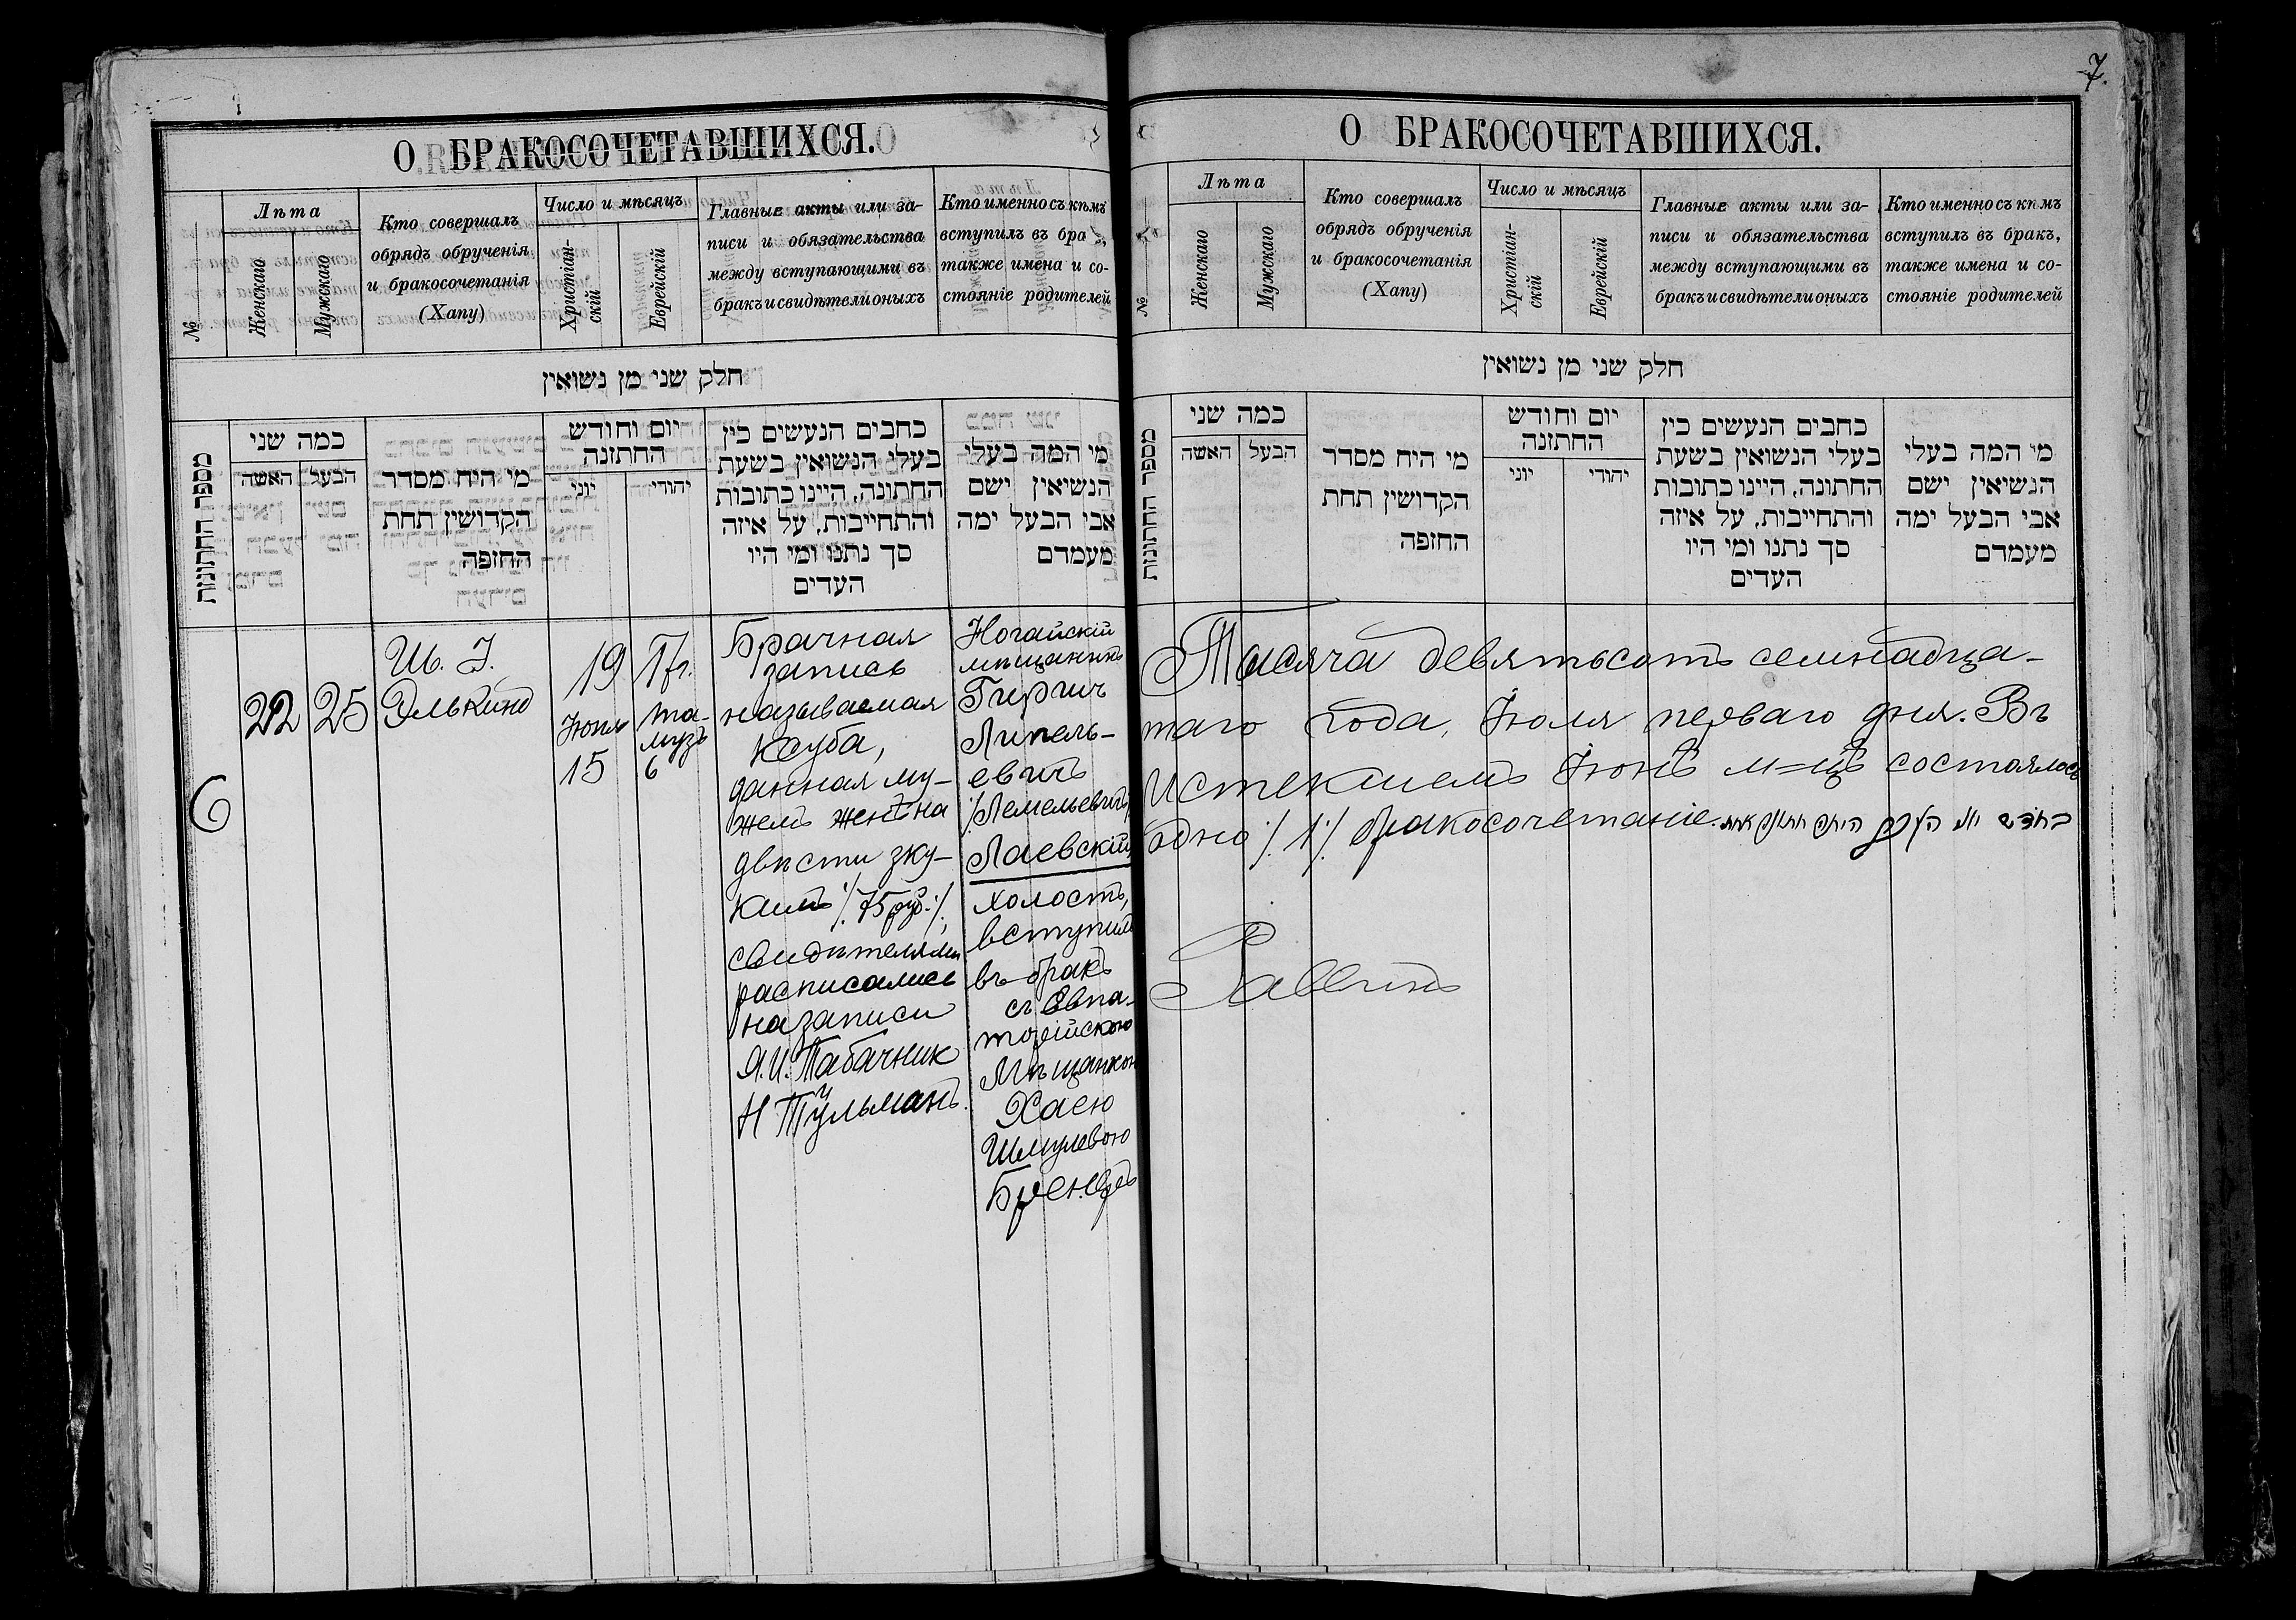 7.
О БРАКОСОЧЕТАВШИХСЯ.
№
Лѣта
Женскаго
Мужскаго
Кто совершалъ
обрядъ обрученія
и бракосочетанія
(Хапу)
Число и мѣсяцъ
Христіан-
скій
Еврейскій
Главные акты или за-
писи и обязательства
между вступающими въ
бракъ и свидѣтели оныхъ
Кто именно съ кѣмъ
вступилъ въ бра
также имена и со-
стояніе родителей
חלק שני מן נשואין
מספר החתונות
כמה שני
האשה
הבעל
מי היח מסדר
הקדושין תחת
החופה
יום וחודש
החתונה
יוני
יהודי
כחבים הנעשים כין
בעלי הנשואין בשעת
החתונה, היינו כתובות
והתחייבות, על איזה
סך נתנו ומי היו
העדים
מי המה בעלי
הנשיאין ישם
אבי הבעל ימה
מעמדם
6
22
25
Ш. І.
Элькинд
19
Іюня
15
17 г.
Та-
музъ
6
Брачная
запись
называемая
Ксуба,
данная му-
жемъ женѣ на
двѣсти зку-
кимъ /. 75 руб. /.
свидѣтелями
расписались
на записи
Я. И. Табачник
и
Н Тульманъ.
Ногайскій
мѣщанинъ
Гиршъ
Липель-
евичъ
/Лемельевичъ/
Лаевскій,
холостъ,
вступилъ
въ бракъ
съ Евпа-
торійскою
Мѣщанкою
Хаею
Шмулевою
Бренеръ
О БРАКОСОЧЕТАВШИХСЯ.
№
Лѣта
Женскаго
Мужскаго
Кто совершалъ
обрядъ обрученія
и бракосочетанія
(Хапу)
Число и мѣсяцъ
Христіан-
скій
Еврейскій
Главные акты или за-
писи и обязательства
между вступающими въ
бракъ и свидѣтели оныхъ
Кто именно съ кѣмъ
вступилъ въ бракъ,
также имена и со-
стояніе родителей
חלק שני מן נשואין
מספר החתונות
כמה שני
האשה
הבעל
מי היח מסדר
הקדושין תחת
החופה
יום וחודש
החתונה
יוני
יהודי
כחבים הנעשים כין
בעלי הנשואין בשעת
החתונה, היינו כתובות
והתחייבות, על איזה
סך נתנו ומי היו
העדים
מי המה בעלי
הנשיאין ישם
אבי הבעל ימה
מעמדם
Тысяча девятьсотъ семнадца-
таго года, Іюля перваго дня. Въ
истекшемъ Іюнѣ м=цѣ состоялось
одно /. 1 /. бракосочетаніе.
Раввинъ